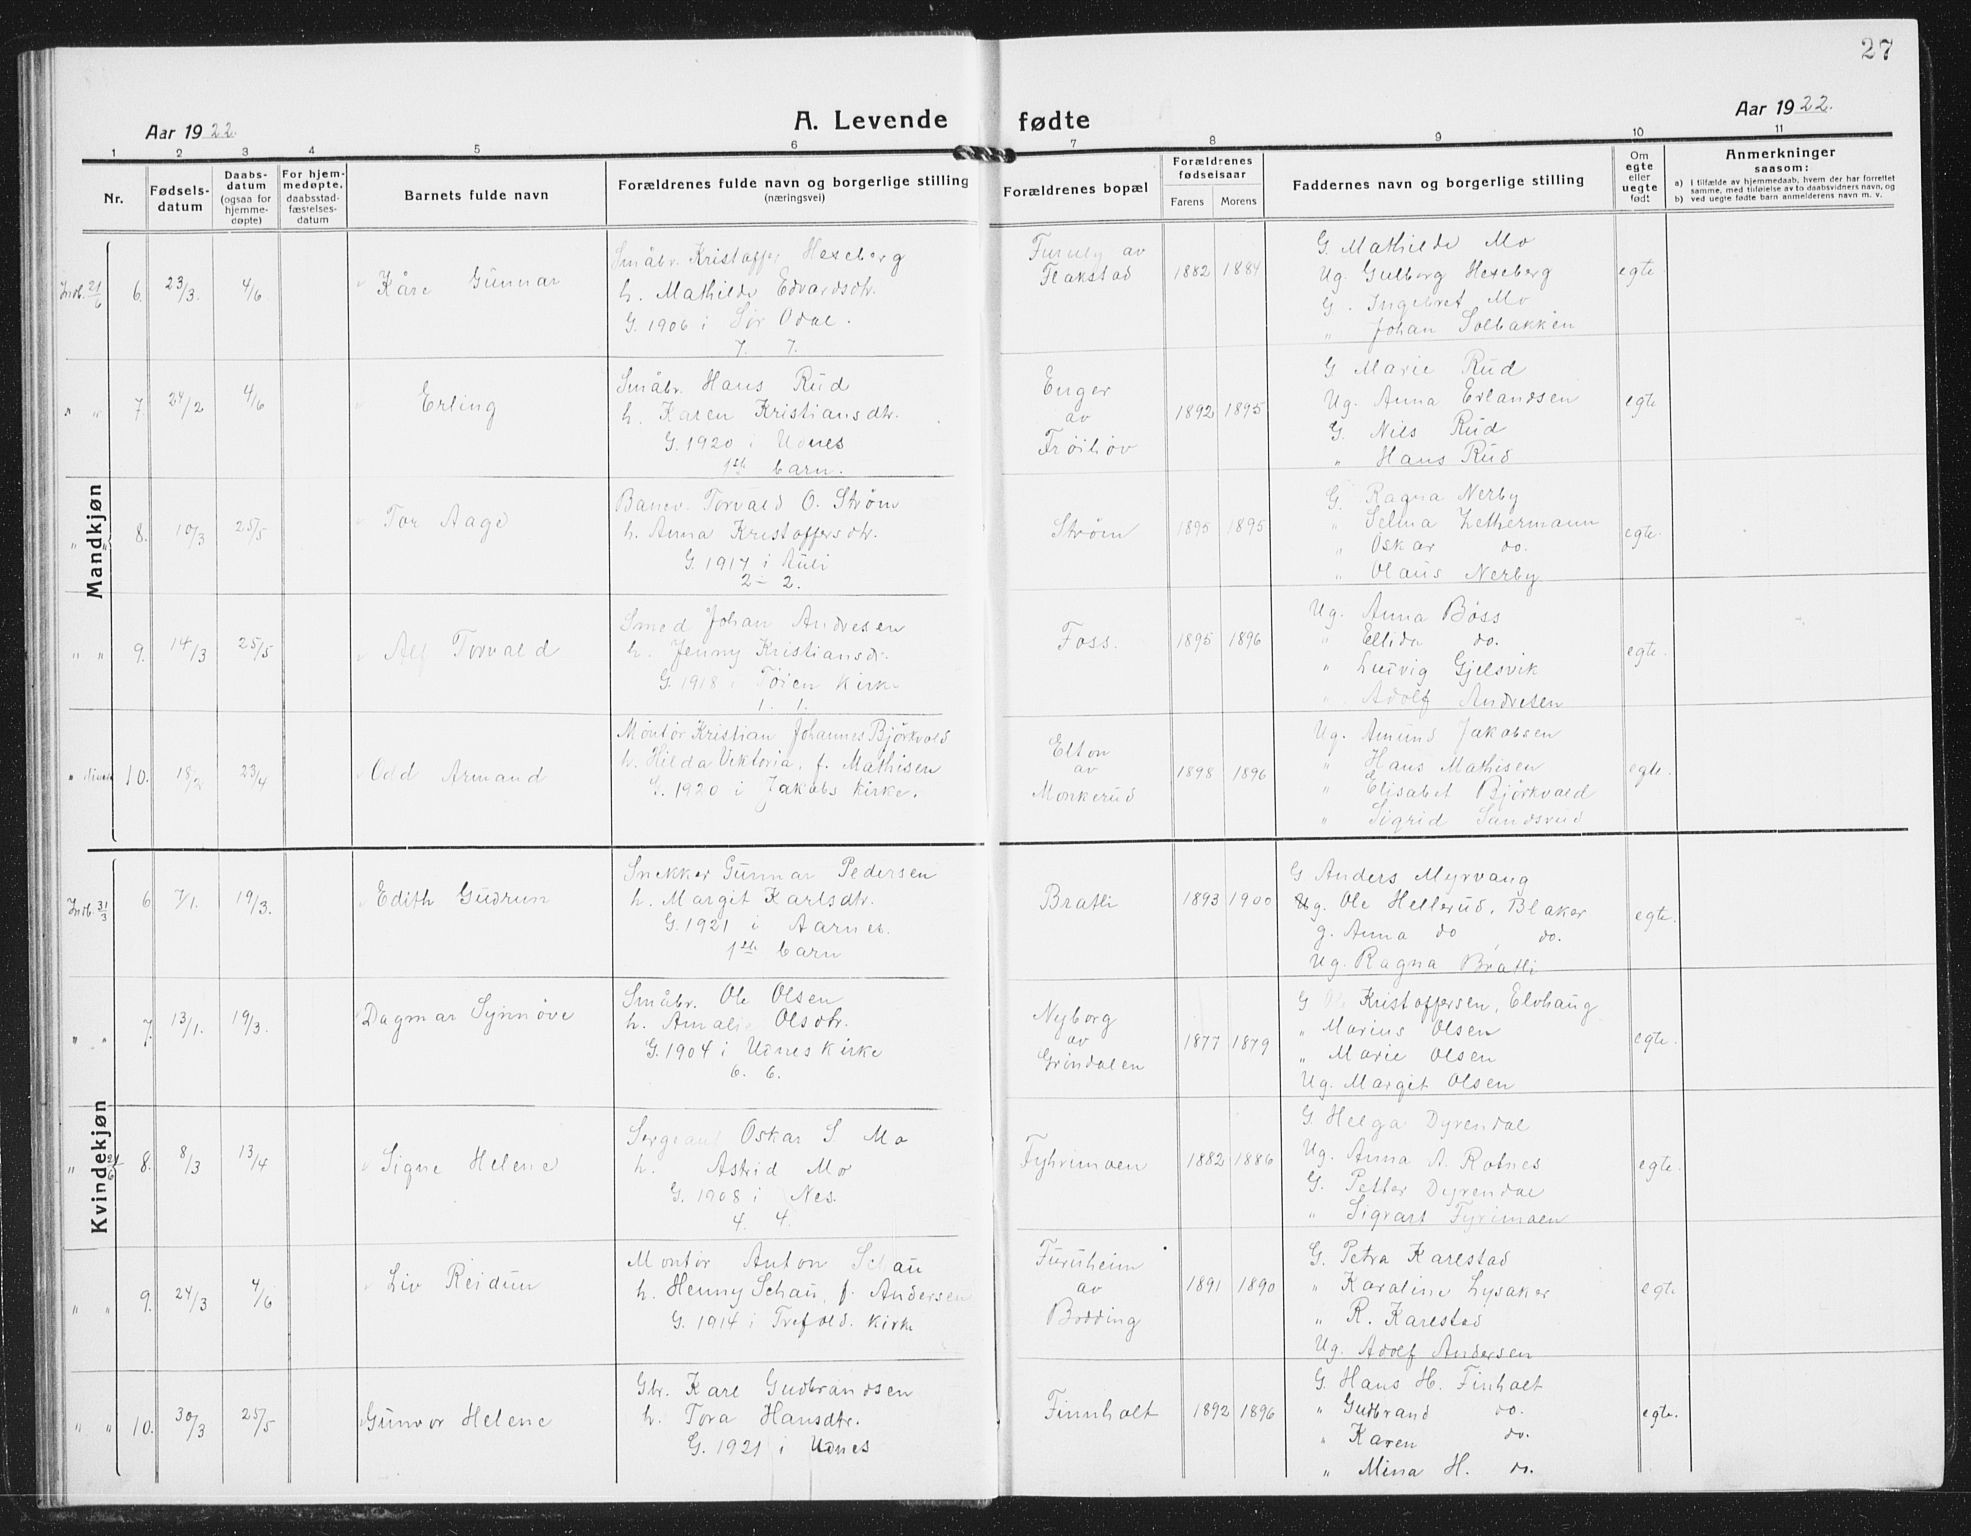 27
Aar 1922.
A. Levende fødte
Aar 1922.
1 2 3 4 5 6 7 8 9 10 11
Nr.
Fødselsdatum
Daabsdatum (ogsaa for hjemmedøpte)
For hjemmedøpte, daabsstadfæstelsesdatum
Barnets fulde navn
Forældrenes fulde navn og borgerlige stilling (næringsvei)
Forældrenes bopæl
Forældrenes fødselsaar
Farens Morens
Faddernes navn og borgerlige stilling
Om egte eller uegte født
Anmerkninger saasom:
a) I tilfælde av hjemmedaab, hvem der har forrettet samme, med tilføielse av to daabsvidners navn, og
b) ved uegte fødte barn anmelderens navn m. v.
Mandkjøn
Indb. 21/6 6. 23/3. 4/6 Kåre Gunnar
Småbr. Kristoffer Hexeberg
h. Mathilde Edvardsdtr.
G. 1906 i Sør Odal.
7. 7.
Furuly av
Flakstad
1882 1884
G. Mathilde Mo
Ug. Gulborg Hexeberg
G. Ingebret Mo
" Johan Solbakken
egte.
" " 7. 24/2 4/6 Erling
Småbr. Hans Rud
h. Karen Kristiansdtr.
G. 1920 i Udnes
1ste barn.
Enger
av
Frøihov
1892 1895
G Marie Rud
Ug. Anna Erlandsen
G. Nils Rud
" Hans Rud
egte
" " 8. 10/3 25/5 Tor Aage
Banev. Torvald O. Strøm
h. Anna Kristoffersdtr.
G. 1917 i Auli
2 - 2.
Strøm
1895 1895
G. Ragna Nerby
" Selma Zethermann
" Oskar do.
" Olaus Nerby
egte.
" " 9. 14/3 25/5 Alf Torvald
Smed Johan Andresen
h. Jenny Kristiansdr.
G. 1918 i Tøien kirke
1. 1.
Foss.
1895 1896
Ug. Anna Bøss
" Ellida do.
" Ludvig Gjelsvik
" Adolf Andresen
egte.
" 10. 18/2 23/4 Odd Armand
Montør Kristian Johannes Bjørkvold
h. Hilda Viktoria, f. Mathisen
G. 1920 i Jakobs kirke.
Elton
av
Monkerud
1898 1896
Ug. Amund Jakobsen
" Hans Mathisen
" Elisabet Bjørkvold
" Sigrid Sandsrud
egte.
Kvindekjøn
Indb. 31/3 6 7/1. 19/3. Edith Gudrun
Snekker Gunnar Pedersen
h. Margit Karlsdtr.
G. 1921 i Aarnes.
1ste barn
Bratli
1893 1900
G Anders Myrvang
Ug. Ole Hellerud, Blaker
g. Anna do , do.
Ug. Ragna Bratli
egte.
" " 7. 13/1. 19/3. Dagmar Synnøve
Småbr. Ole Olsen
h. Amalie Olsdtr.
G. 1904 i Udnes kirke
6. 6.
Nyborg
av
Grøndalen
1877 1879
G Ole Kristoffersen, Elvhaug
" Marius Olsen
" Marie Olsen
Ug. Margit Olsen
egte.
" 8. 8/3 13/4 Signe Helene
Sergeant Oskar S. Mo
h. Astrid Mo
G. 1908 i Nes.
4. 4.
Fyhrimoen
1882 1886
G. Helga Dyrendal
Ug. Anna A. Rotnes
G. Petter Dyrendal
" Sigvart Fyrimoen
egte.
" " 9. 24/3 4/6 Liv Reidun
Montør Anton Schau
h. Henny Schau, f. Andersen
G. 1914 i Trefold. kirke
Furuheim
av
Bodding
1891 1890
G. Petra Karestad
" Karoline Lysaker
" R. Karestad
Ug. Adolf Andersen
egte
" " 10. 30/3 25/5 Gunvor Helene
Gbr. Karl Gudbrandsen
h. Tora Hansdtr.
G. 1921 i Udnes
Finnholt
1892 1896
G. Hans H. Finholt
" Gudbrand do.
" Karen do.
" Mina H. do.
egte.